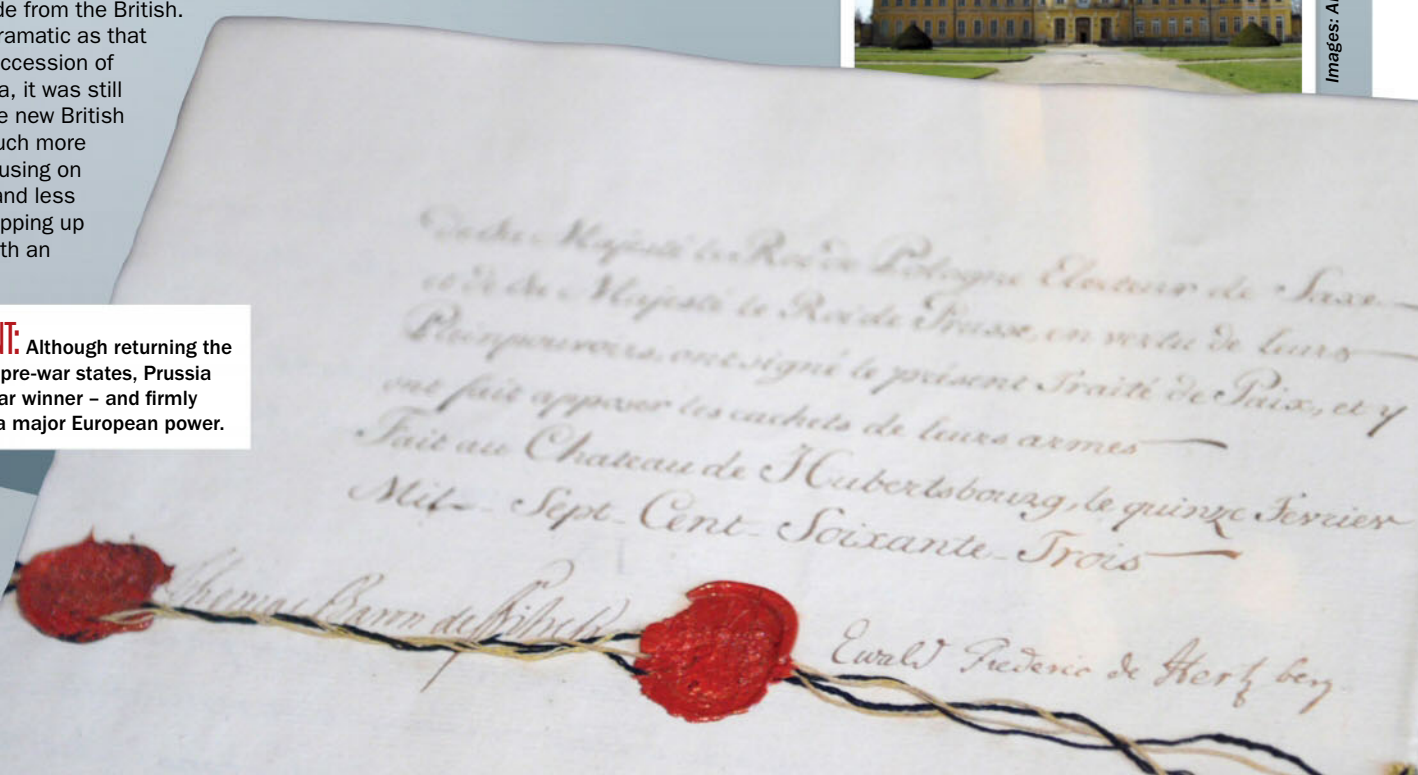 de from the British.
ramatic as that
ccession of
a, it was still
e new British
uch more
using on
and less
pping up
th an
NT: Although returning the
pre-war states, Prussia
ar winner – and firmly
a major European power.
Images: Al
Majesté le Roi de Pologne Electeur de Saxe
et de Sa Majesté le Roi de Prusse, en vertu de leurs
Pleinpouvoirs, ont signé le présent Traité de Paix, et y
ont fait apposer les cachets de leurs armes
Fait au Chateau de Hubertsbourg, le quinze Fevrier
Mil Sept Cent Soixante Trois
Thomas Baron de
Ewald Frederic de Hertzberg